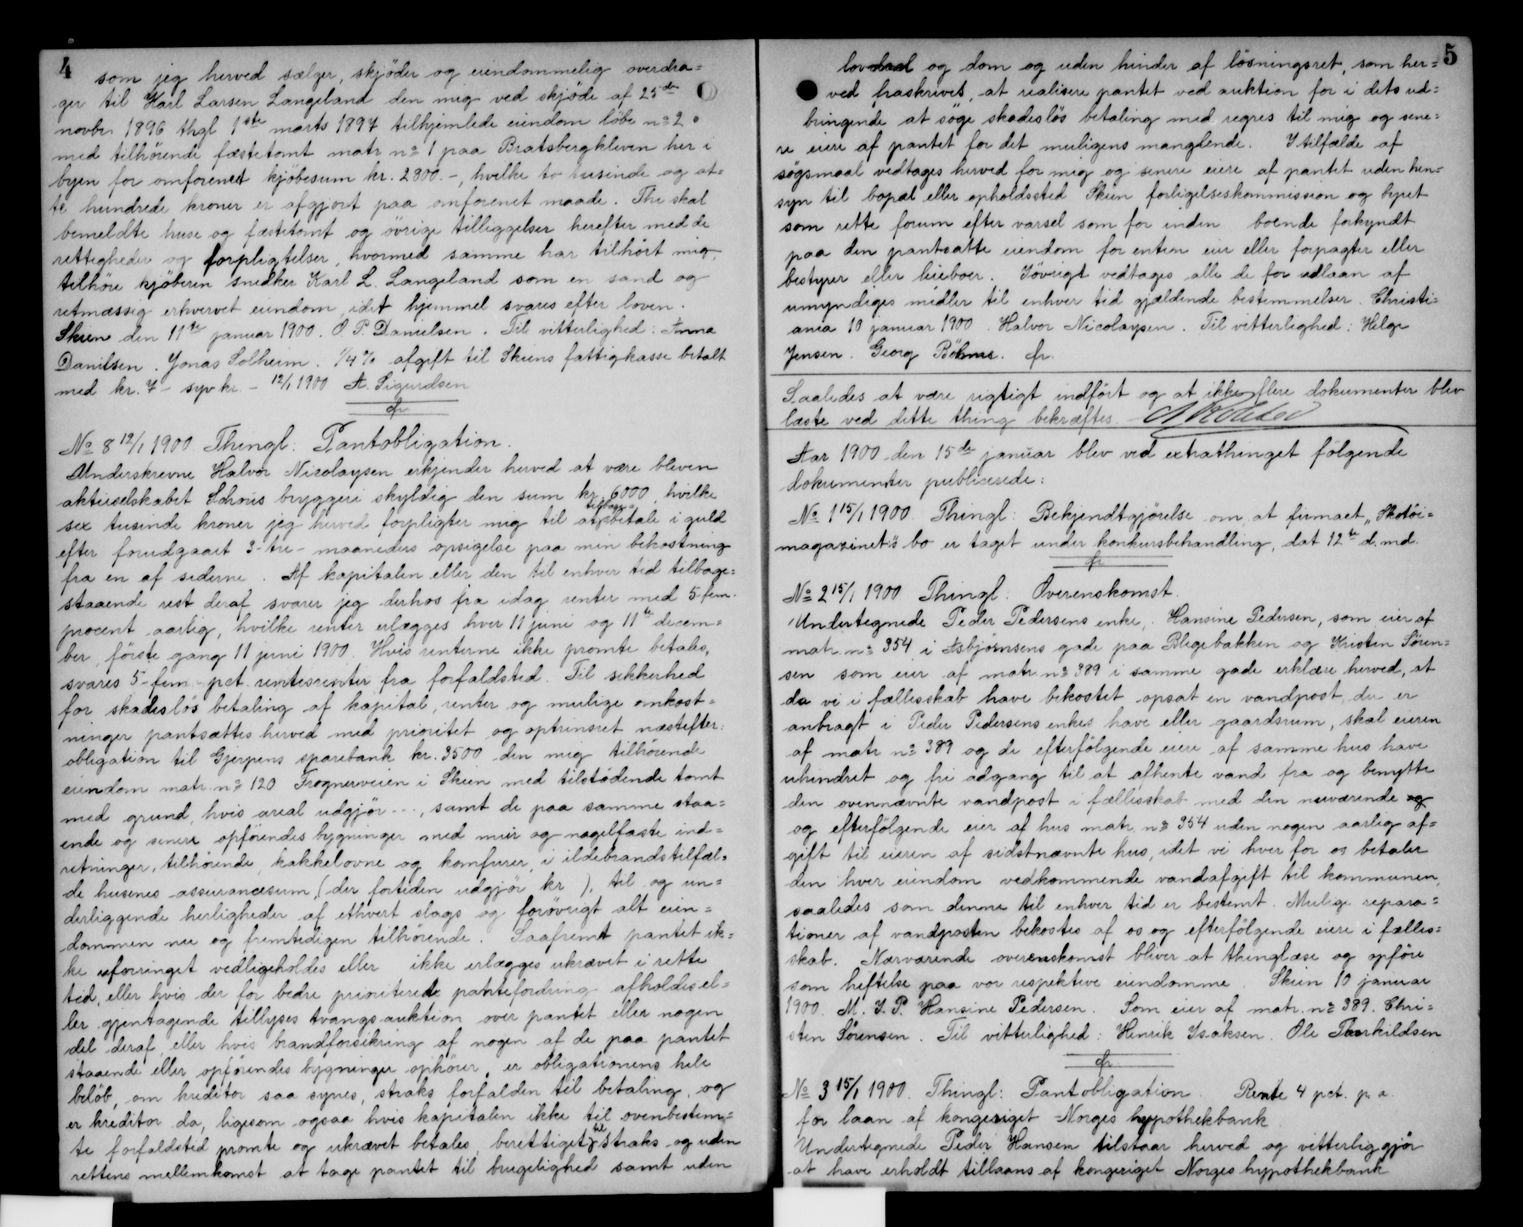 4
som jeg herved sælger, skjøder og eiendommelig overdra=
ger til Karl Larsen Langeland den mig ved skjøde af 25de
novbr 1896 thgl 1ste marts 1897 tilhjemlede eiendom løbe no 20
med tilhørende fæstetomt matr no 1 paa Bratsbergkleven her i
byen for omforenet kjøbesum kr. 2800.-, hvilke to tusinde og ot=
te hundrede kroner er afgjort paa omforenet maade. Thi skal
bemeldte huse og fæstetomt og øvrige tilliggelser herefter med de
rettigheder og forpligtelser, hvormed samme har tilhørt mig,
tilhøre kjøberen snedker Karl L. Langeland som en sand og
retmæssig erhvervet eiendom, idet hjemmel svares efter loven.
Skien den 11te januar 1900. O P. Danielsen. Til vitterlighed: Anna
Danilsen. Jonas Solheim. 1/4 % afgift til Skiens fattigkasse betalt
med kr. 7 - syv kr. - 12/1 1900 A. Sigurdsen
No 8 12/1 1900 Thingl: Pantobligation.
Underskrevne Halvor Nicolaysen erkjender herved at være bleven
aktieselskabet Schous bryggeri skyldig den sum kr. 6000, hvilke
sex tusinde kroner jeg herved forpligter mig til at tilbage betale i guld
efter forudgaaet 3 - tre - maaneders opsigelse paa min bekostning
fra en af siderne. Af kapitalen eller den til enhver tid tilbage=
staaende rest deraf svarer jeg derhos fra idag renter med 5 - fem -
procent aarlig, hvilke renter erlægges hver 11 juni og 11te decem=
ber, første gang 11 juni 1900. Hvis renterne ikke promte betales,
svares 5 - fem - pct. rentesrenter fra forfaldstid. Til sikkerhed
for skadesløs betaling af kapital, renter og mulige omkost=
ninger pantsættes herved med prioritet og optrinsret næstefter:
obligation til Gjerpens sparebank kr. 3500 den mig tilhørende
eiendom matr. no 120 Frognerveien i Skien med tilstødende tomt
med grund, hvis areal udgjør ..., samt de paa samme staa=
ende og senere opførendes bygninger med mur og nagelfaste ind=
retninger, tilhørende kakkelovne og komfurer, i ildebrandstilfæl=
de husenes assurancesum (der fortiden udgjør kr ), til og un=
derliggende herligheder af ethvert slags og forøvrigt alt eien=
dommen nu og fremtidigen tilhørende. Saafremt pantet ik=
ke uforringet vedligeholdes eller ikke erlægges ukrævet i rette
tid, eller hvis der for bedre prioriterede pantefordring afholdes el=
ler gjentagende tillyses tvangsauktion over pantet eller nogen
del deraf, eller hvis brandforsikring af nogen af de paa pantet
staaende eller opførendes bygninger ophører, er obligationens hele
beløb, om kreditor saa synes, straks forfalden til betaling, og
er kreditor da, ligesom ogsaa hvis kapitalen ikke til ovenbestem=
te forfaldstid promte og ukrævet betales, berettiget til straks og uden
rettens mellemkomst at tage pantet til brugelighed samt uden
5
lovdael og dom og uden hinder af løsningsret, som her=
ved fraskrives, at realisere pantet ved auktion for i dets ud=
bringende at søge skadesløs betaling med regres til mig og sene=
re eiere af pantet for det muligens manglende. I tilfælde af
søgsmaal vedtages herved for mig og senere eiere af pantet uden hen=
syn til bopæl eller opholdssted Skien forligelseskommission og byret
som rette forum efter varsel som for inden boende forkyndt
paa den pantsatte eiendom for enten eier eller forpagter eller
bestyrer eller leieboer. Iøvrigt vedtages alle de for udlaan af
umyndiges midler til enhver tid gjældende bestemmelser. Christi=
ania 10 januar 1900. Halvor Nicolaysen. Til vitterlighed: Helge
Jensen. Georg Böhme.
Saaledes at være rigtigt indført og at ikke flere dokumenter blev
læste ved dette thing bekræftes
Aar 1900 den 15de januar blev ved extrathinget følgende
dokumenter publicerede:
No 1 15/1 1900. Thingl: Bekjendtgjørelse om, at firmaet "Skotøi=
magazinet"s bo er taget under konkursbehandling, dat 12te d. md.
No 2 15/1 1900 Thingl: Overenskomst.
Undertegnede Peder Pedersens enke, Hansine Pedersen, som eier af
matr. no 354 i Asbjørnsens gade paa Blegebakken og Kristen Søren=
sen som eier af matr no 389 i samme gade erklære herved, at
da vi i fællesskab have bekostet opsat en vandpost, der er
anbragt i Peder Pedersens enkes have eller gaardsrum, skal eieren
af matr no 389 og de efterfølgende eiere af samme hus have
uhindret og fri adgang til at afhente vand fra og benytte
den ovennævnte vandpost i fællesskab med den nuværende og
og efterfølgende eier af hus matr. no 354 uden nogen aarlig af=
gift til eieren af sidstnævnte hus, idet vi hver for os betaler
den hver eiendom vedkommende vandafgift til kommunen,
saaledes som denne til enhver tid er bestemt. Mulige repara=
tioner af vandposten bekostes af os og efterfølgende eiere i fælles=
skab. Nærværende overenskomst bliver at thinglæse og opføre
som heftelse paa vor respektive eiendomme. Skien 10 januar
1900. M. I. P. Hansine Pedersen. Som eier af matr. no 389. Chri=
sten Sørensen. Til vitterlighed: Henrik Isaksen. Ole Thorkildsen
No 3 15/1 1900. Thingl: Pantobligation. Rente 4 pct. p. a.
for laan af kongeriget Norges hypothekbank
Undertegnede Peder Hansen tilstaar herved og vitterliggjør
at have erholdt tillaans af kongeriget Norges hypothekbank